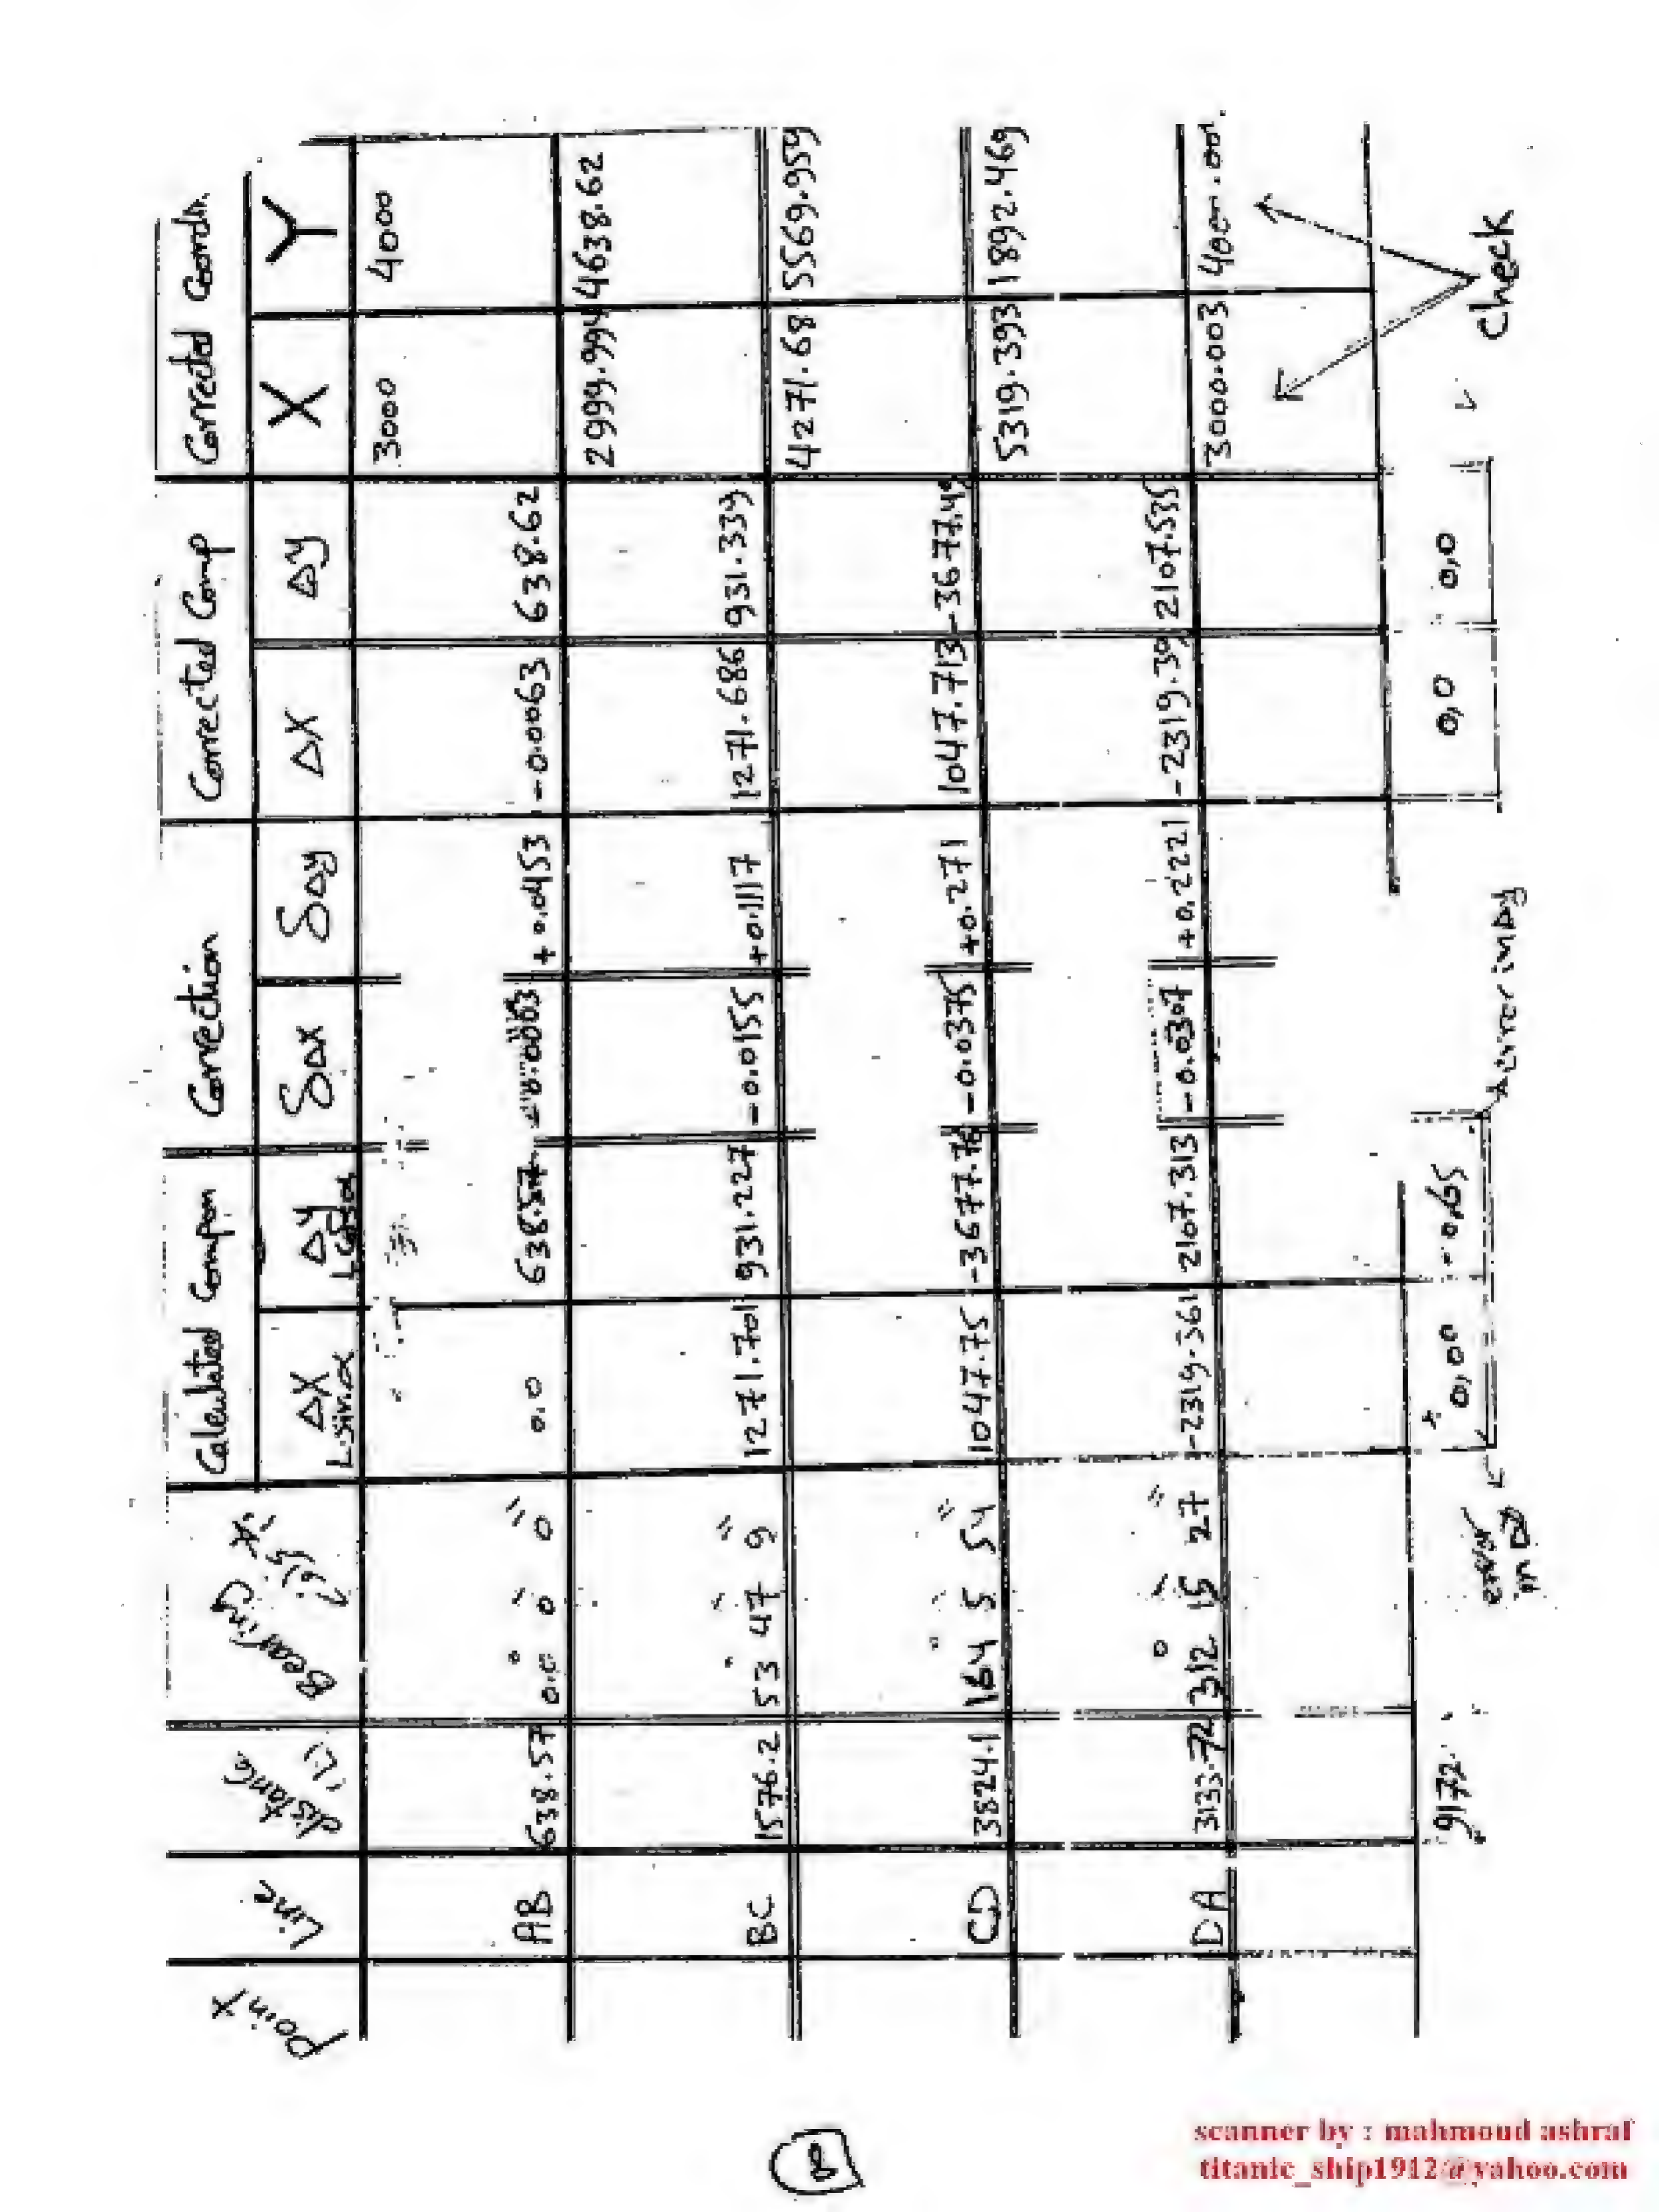 Point Line distance (L) Bearing Calculated Compon Correction Corrected Comp Corrected Coordin.
ΔX L sin α ΔY L cos α δΔX δΔY ΔX ΔY X Y
3000 4000
AB 638.57 0.0° 0' 0" 0.0 638.57 -0.0063 +0.0453 -0.0063 638.62
2999.994 4638.62
BC 1576.2 53° 47' 9" 1271.701 931.227 -0.0155 +0.1117 1271.686 931.339
4271.68 5569.959
CD 3824.1 164° 5' 54" 1047.75 -3677.76 -0.0375 +0.271 1047.713 -3677.49
5319.393 1892.469
DA 3133.72 312° 15' 27" -2319.361 2107.313 -0.0307 +0.2221 -2319.39 2107.535
3000.003 4000.00
9172 0,00 -0.65 0,0 0,0
error in error in Δy check
8
scanner by : mahmoud ashraf
titanic_ship1912@yahoo.com